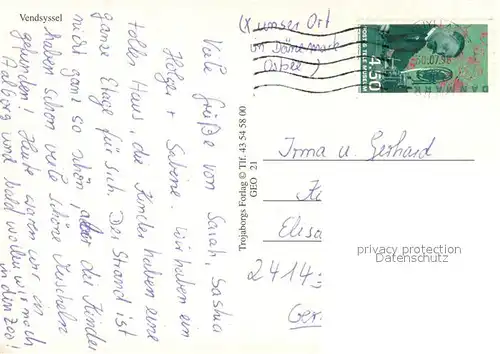 Vendsyssel
(x unser Ort
in Dänemark
(Ostsee)
Viele Grüße von Sarah, Saskia
Holger + Sabine. Wir haben ein
tolles Haus, die Kinder haben eine
ganze Etage für sich. Der Strand ist
nicht ganz so schön, aber die Kinder
haben schon viele schöne Muscheln
gefunden! Heute waren wir in
Aalborg und bald wollen wir noch
in den Zoo!
Trojaborgs Forlag © Tlf. 43 54 58 00
GEO 21
POST & TELE MUSEUM
4.50
DANMARK
.07.98
Irma u. Gerhard
Elisa
2414
Ger
privacy protection
Datenschutz